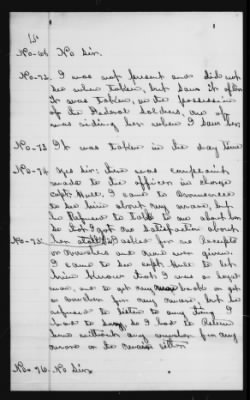 15
No-66 No Sir.
No-72. I was not present and did not
see when taken, but saw it after
It was taken, in the possession
of the Federal Soldiers, one off
was riding her when I saw her
No-73 It was taken in the day time
No-74 Yes Sir; there was complaint
made to the officer in charge
Capt Rule, I came to Commerce
to see him about my mare, but
he Refused to talk to me about her
So I got no satisfaction about
No-75. her at all. I asked for no Receipts
or vouchers and none were given.
I came to see Capt Rule to let
him know that I was a loyal
man, and to get my mare back or get
a voucher for my mare, but he
refused to listen to any thing I
had to say, so I had to Return
home without any voucher for my
mare or the mare either
No-76. No Sir